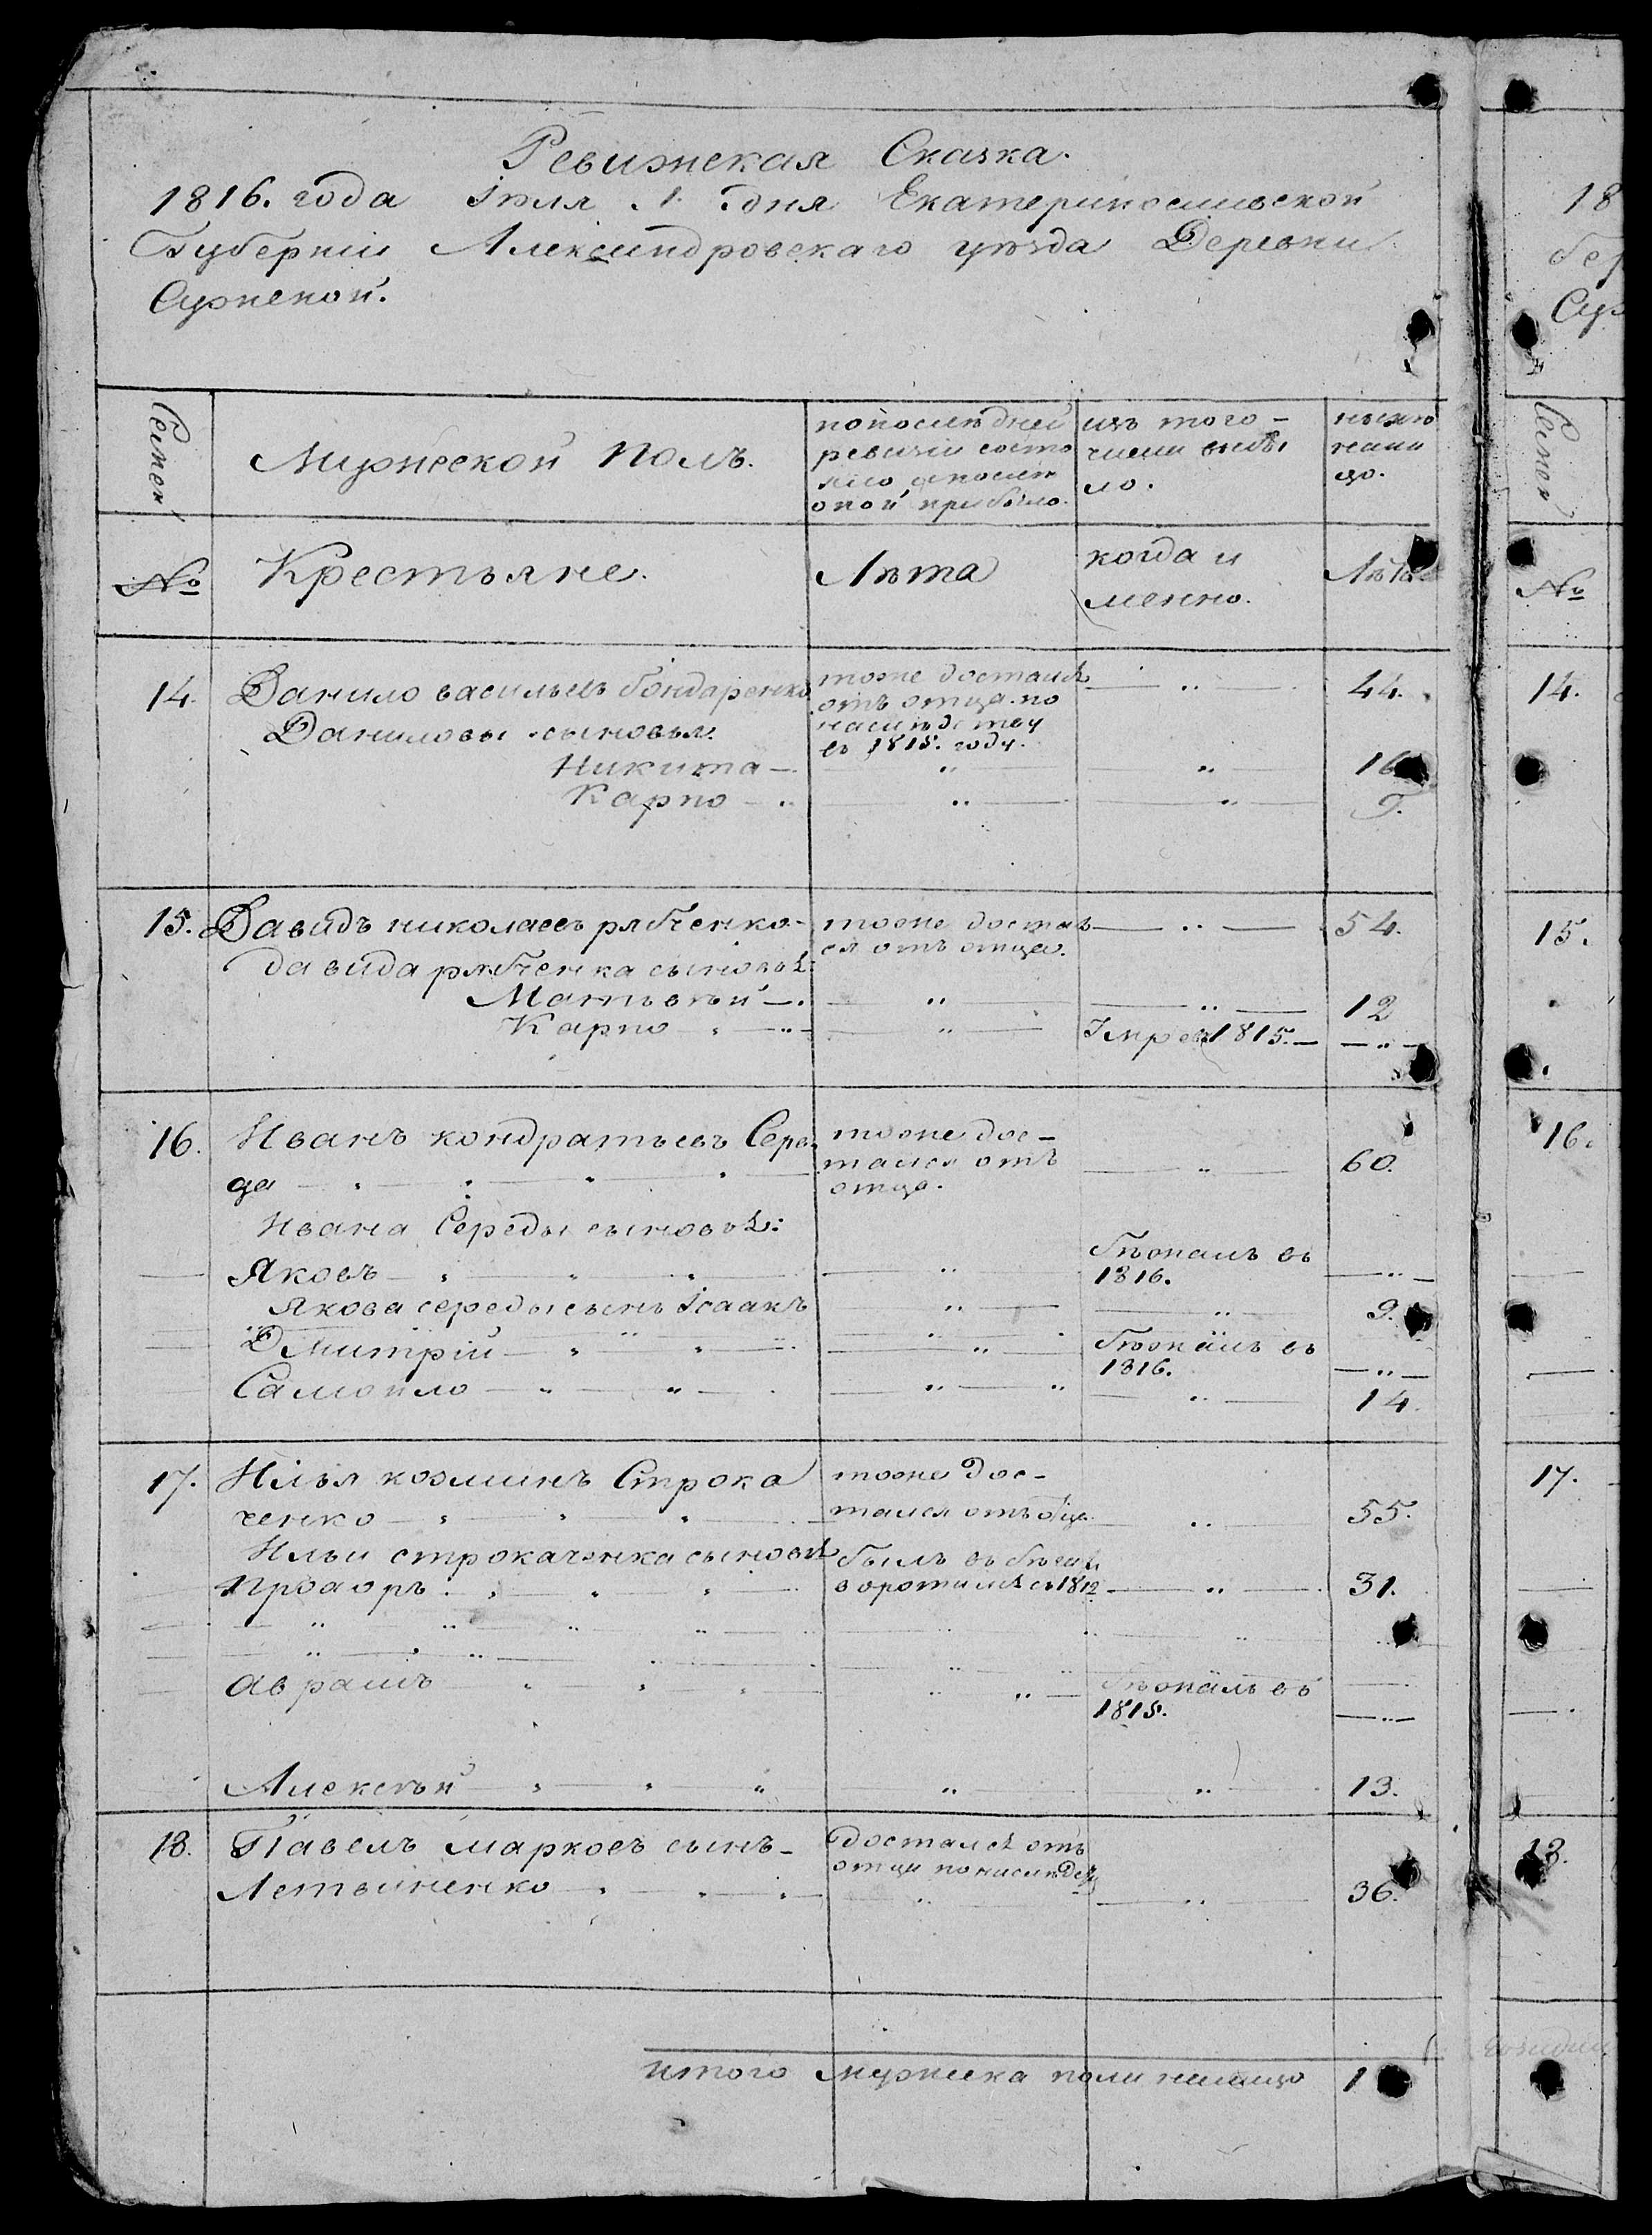 Ревижская Сказка.
1816. года Іюля 1. дня Екатеринославской
Губерніи Александровскаго уѣзда Деревни
Суженой.
Семеи
Мужеской полъ.
попослѣдней
ревизіи состо
яло ипослѣ
оной прибыло.
изъ того
числа выбы
ло.
нынѣ
нали
цо.
№
Крестьяне.
Лѣта
когда и
менно.
Лѣта
14.
Данило васильевъ бондаренко
тоже достался
отъ отца по
наслѣдству
въ 1815. году.
44.
Даниловы сыновья
Никита
16
Карпо
15.
Давидъ николаевъ рябченко
тоже достал
ся отъ отца.
54.
давида рябченка сыновья:
Матьвѣй
12
Карпо
Умре въ 1815.
16.
Иванъ кондратьевъ Сере
да
тоже дос-
тался отъ
отца.
60.
Ивана Середы сыновья:
Яковъ
бѣжалъ въ
1816.
Якова середы сынъ Ісаакъ
9.
Дмитрій
бѣжалъ въ
1816.
Самойло
14.
17.
Илья козминъ Строка
ченко
тоже дос-
тался отъ отца
55.
Ильи строкаченка сыновья
былъ въ бѣгахъ
Прохоръ
воротился въ 1812
31.
аврамъ
бѣжалъ въ
1815.
Алексѣй
13.
18.
Павелъ марковъ сынъ
Летвиненко
достался отъ
отца понаслѣдст
36.
итого мужеска пола налицо
1
18
Семеи
№
14.
15.
16.
17.
18.